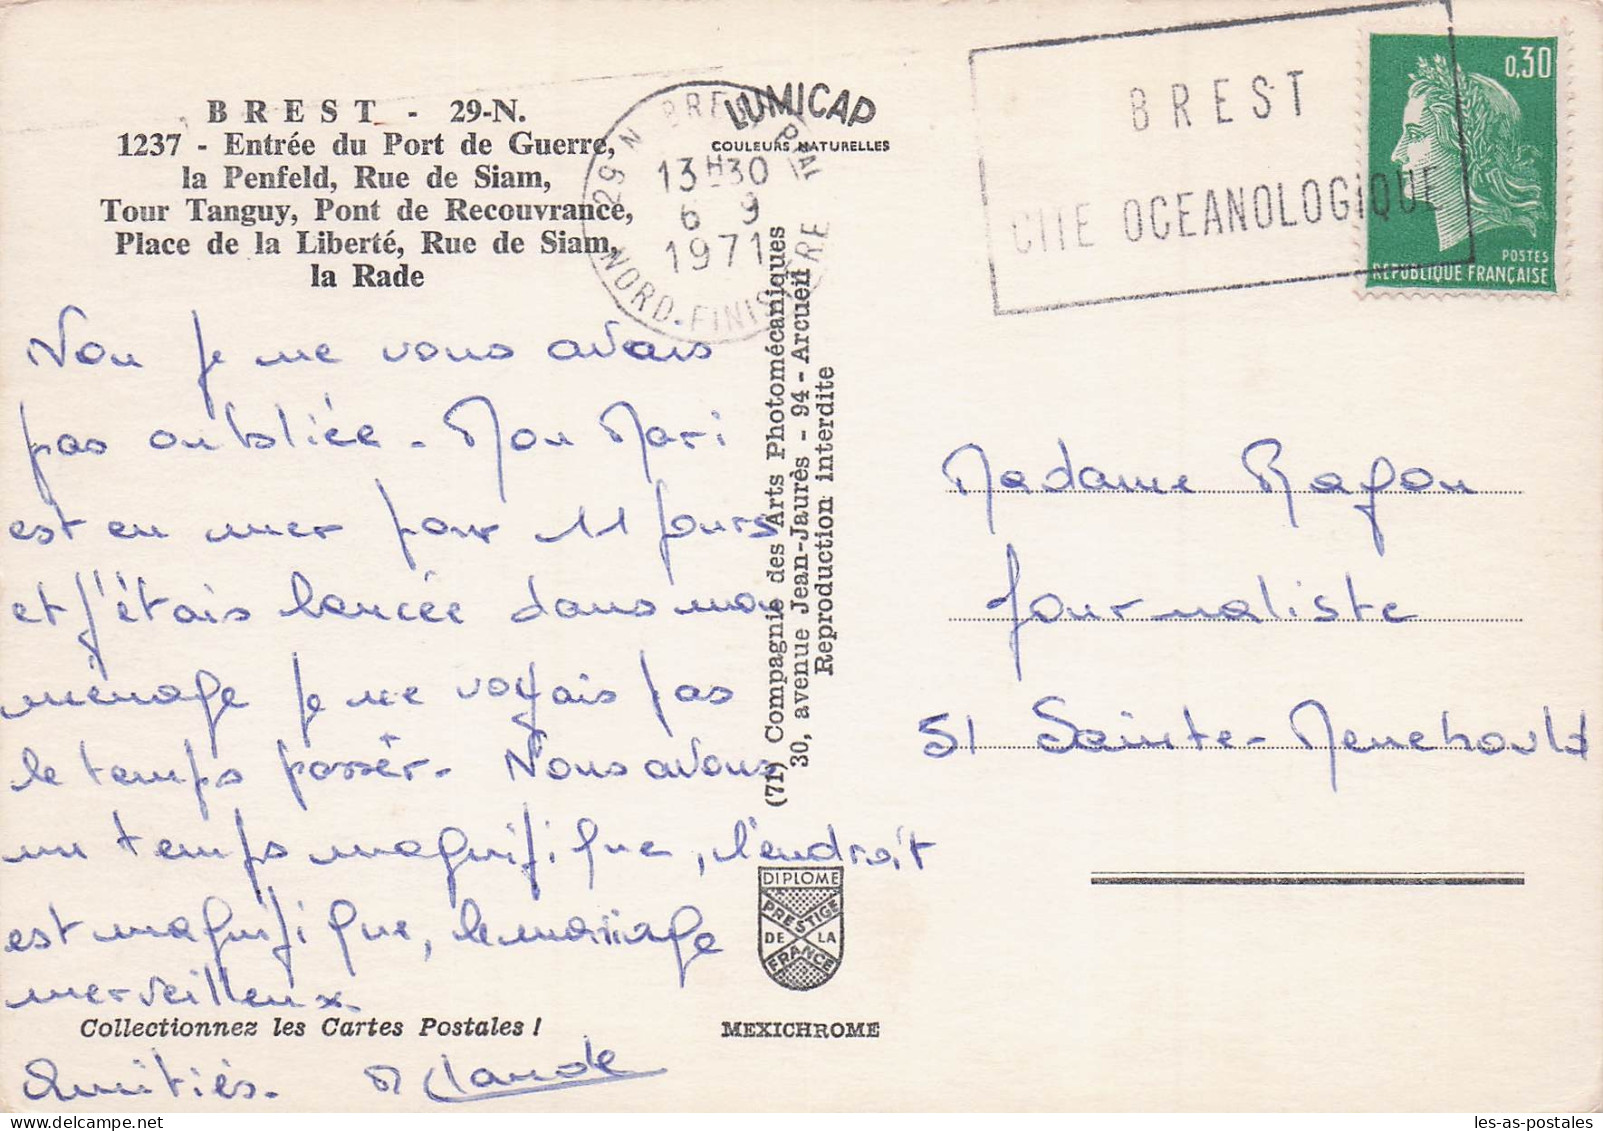 BREST - 29-N.
1237 - Entrée du Port de Guerre,
la Penfeld, Rue de Siam,
Tour Tanguy, Pont de Recouvrance,
Place de la Liberté, Rue de Siam,
la Rade
LUMICAP
COULEURS NATURELLES
29 N BREST PPAL
13H30
6 9
1971
NORD-FINISTERE
BREST
CITE OCEANOLOGIQUE
0,30
POSTES
REPUBLIQUE FRANÇAISE
Non je ne vous avais
pas oubliée - Mon Mari
est en mer pour 11 jours
et j'étais lancée dans mon
ménage je ne voyais pas
le temps passer - Nous avons
un temps magnifique, l'endroit
est magnifique, le mariage
merveilleux.
Amitiés. M Claude
Collectionnez les Cartes Postales !
(71) Compagnie des Arts Photomécaniques
30, avenue Jean-Jaurès - 94 - Arcueil
Reproduction interdite
DIPLOME
PRESTIGE
DE LA
FRANCE
MEXICHROME
Madame Ragon
Journaliste
51 Sainte-Menehould
les-as-postales